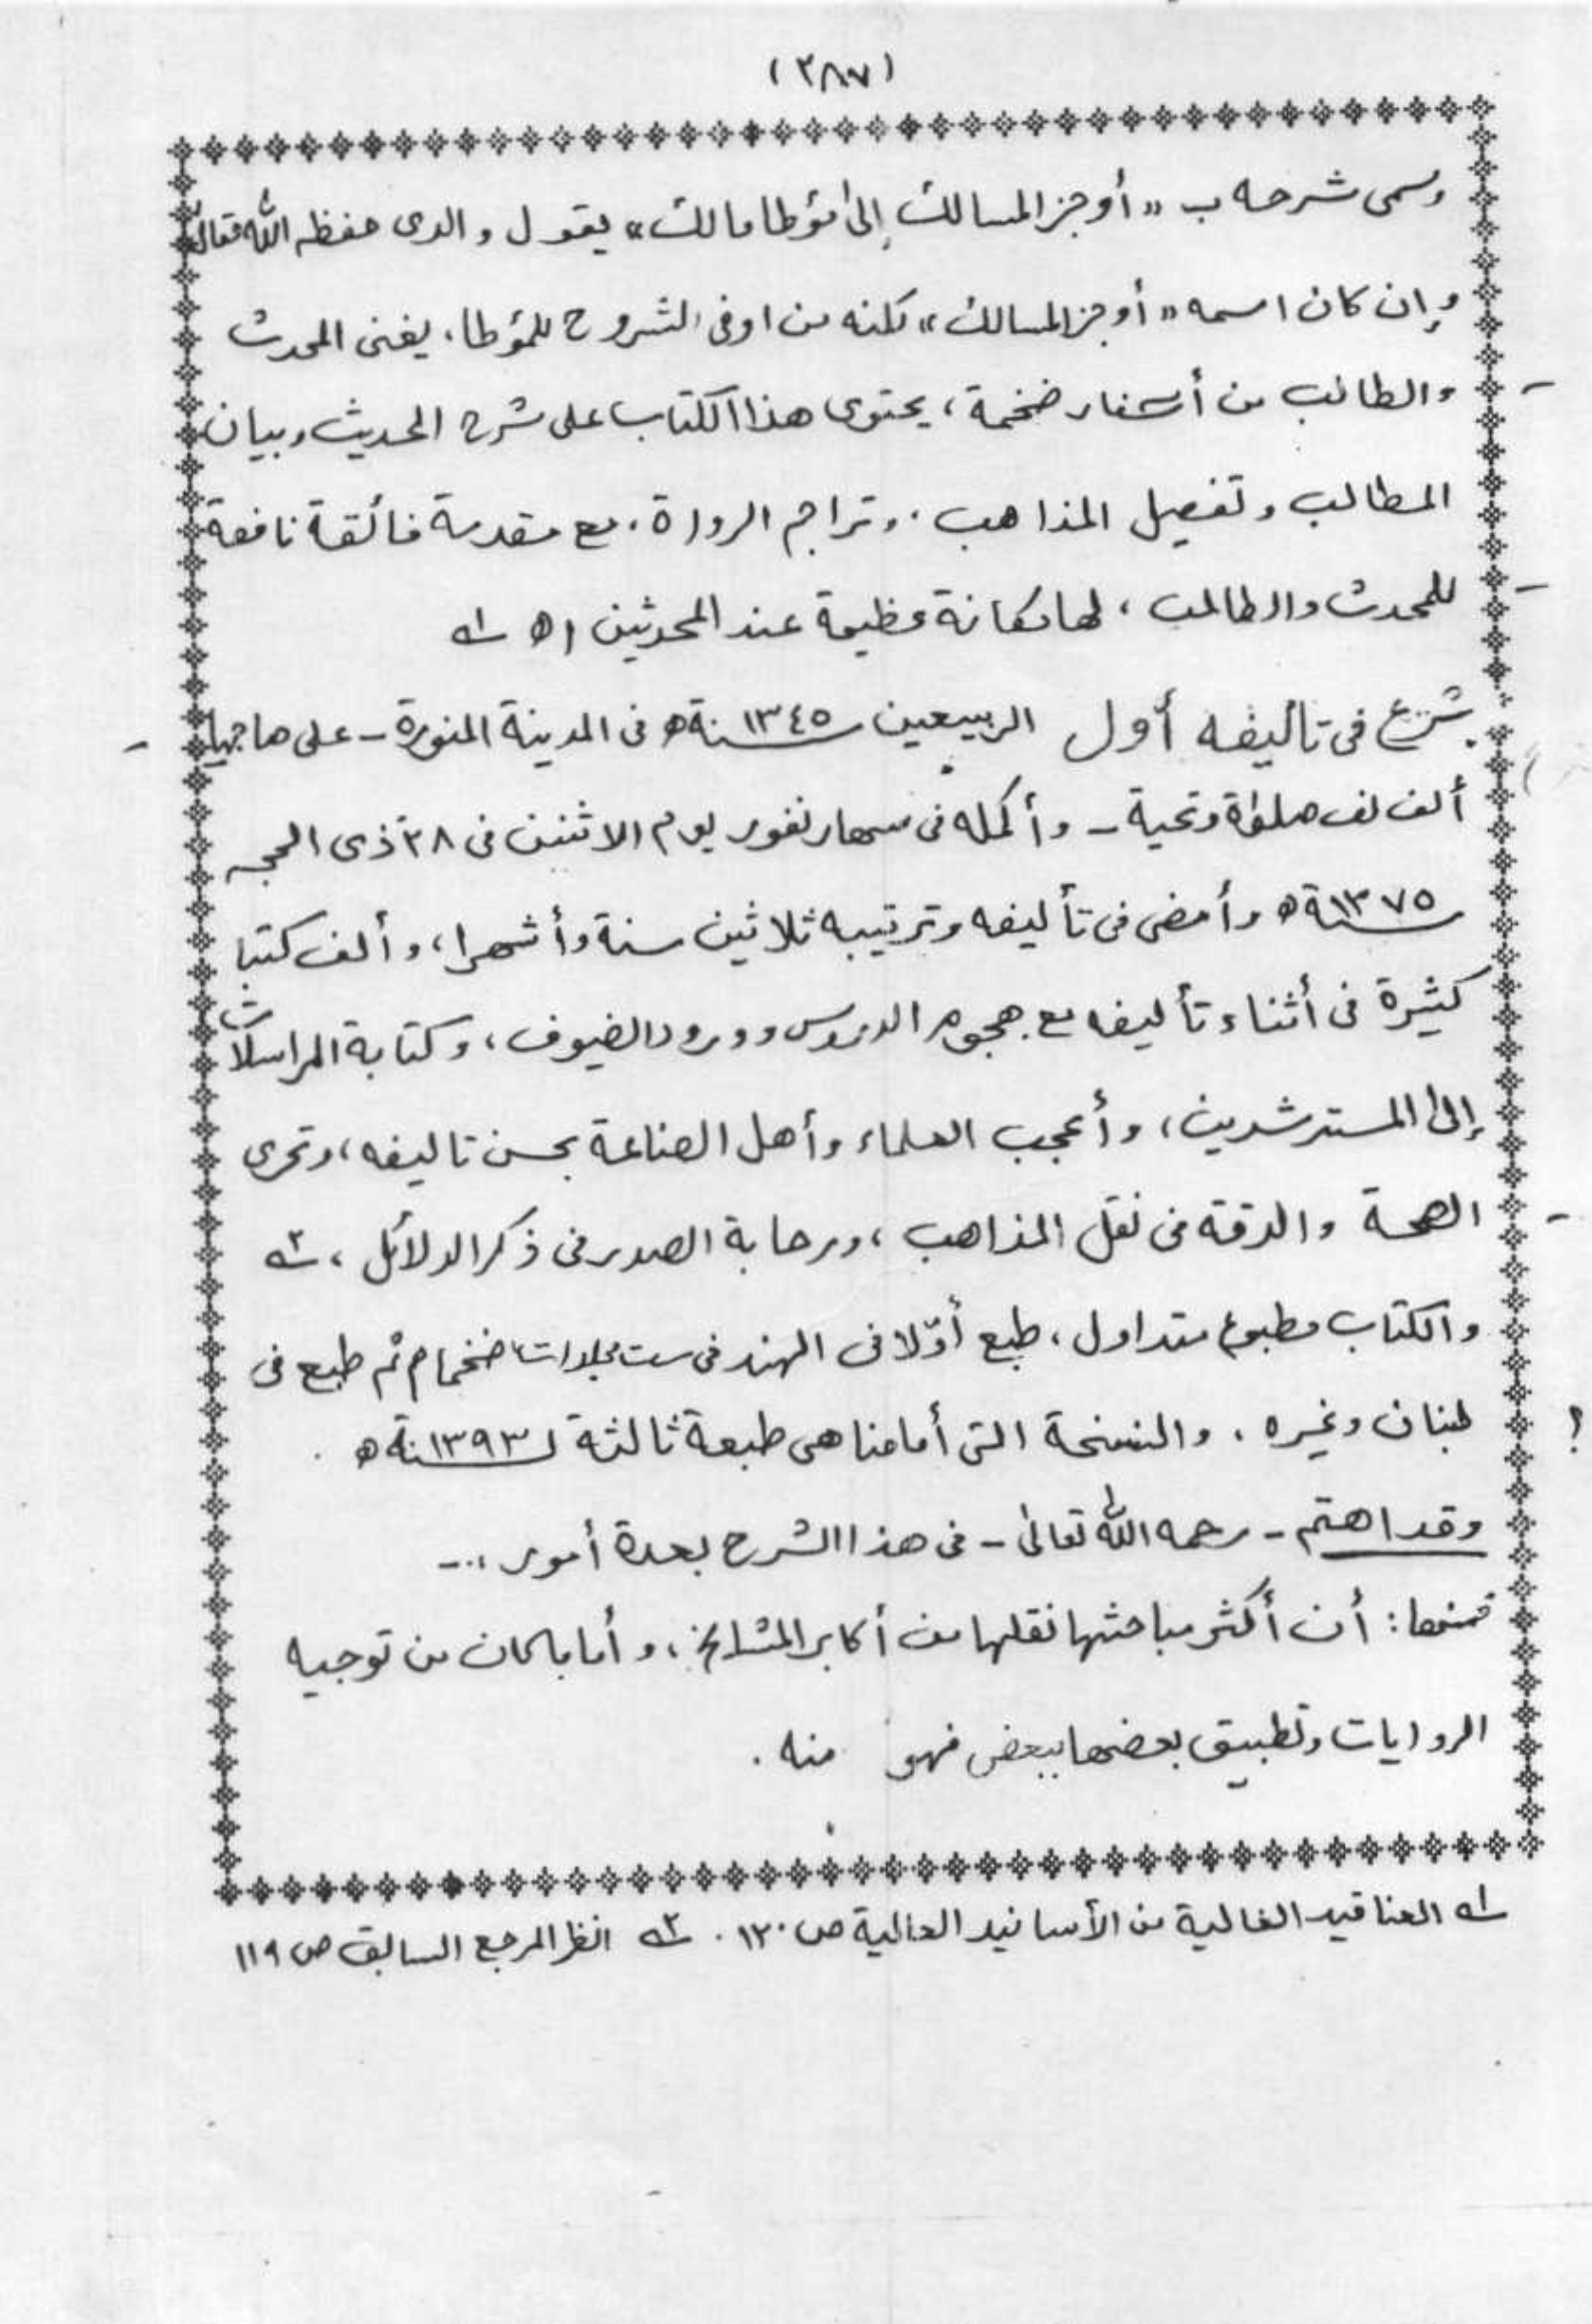 (٣٨٧)
وسمى شرحه ب «أوجز المسالك إلى مؤطا مالك» يقول والدى حفظه الله تعالى
وإن كان اسمه «أوجز المسالك» لكنه من اوفى الشروح للمؤطا، يغنى المحدث
والطالب من أسفار ضخمة، يحتوى هذا الكتاب على شرح الحديث وبيان
المطالب وتفصيل المذاهب، وتراجم الرواة، مع مقدمة فائقة نافعة
للمحدث والطالب، لها مكانة عظيمة عند المحدثين اه ١ـه
شرع فى تأليفه أول الربيعين سنة ١٣٤٥ه فى المدينة المنورة - على صاحبها
ألف لف صلوٰة وتحية - وأكمله فى سهارنفور يوم الاثنين فى ٢٨ ذى الحجه
سنة ١٣٧٥ه وأمضى فى تأليفه وترتيبه ثلاثين سنة وأشهرا، وألف كتبا
كثيرة فى أثناء تأليفه مع هجوم الدروس وورود الضيوف، وكتابة المراسلات
إلى المسترشدين، وأعجب العلماء وأهل الصناعة بحسن تاليفه، وتحرى
الصحة والدقة فى نقل المذاهب، ورحابة الصدر فى ذكر الدلائل، ٢ـه
والكتاب مطبوع متداول، طبع أوّلا فى الهند فى ست مجلدات ضخام ثم طبع فى
لبنان وغيره. والنسخة التى أمامنا هى طبعة ثالثة لسنة ١٣٩٣ه.
؟
وقد اهتم - رحمه الله تعالى - فى هذا الشرح بعدة أمور :-
فمنها: أن أكثر مباحثها نقلها من أكابر المشايخ، وأما ماكان من توجيه
الروايات وتطبيق بعضها ببعض فهو منه.
١ـه العناقيد الغالية من الأسانيد العالية ص ١٢٠. ٢ـه انظر المرجع السابق ص ١١٩